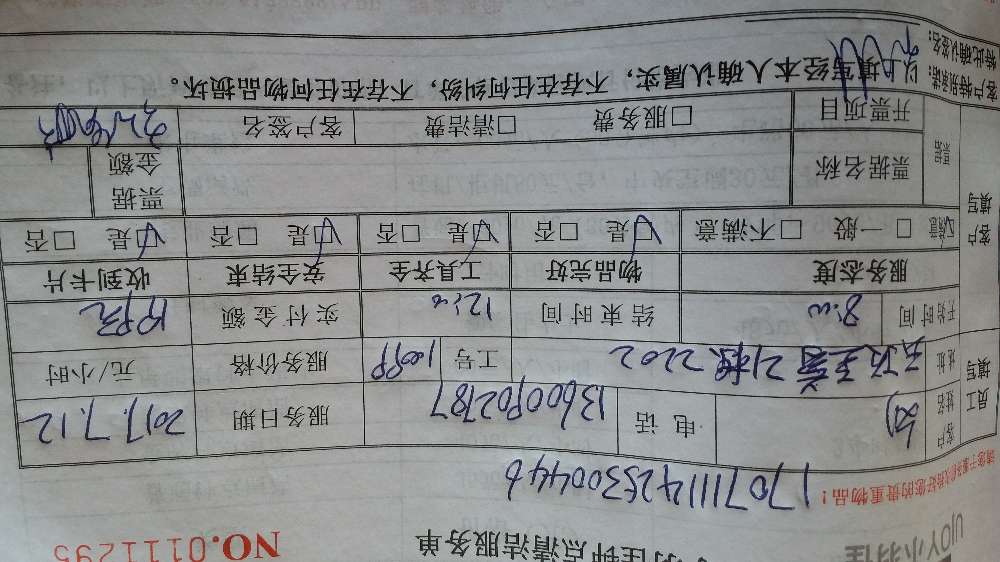 UJOY小羽佳
钟点清洁服务单
NO.0111295
请您于服务前收好您的贵重物品！
1707111425300446
员工填写
客户姓名 刘 电话 13600902787 服务日期 2017.7.12
地址 21栋2202 工号 服务价格 元/小时
开始时间 8:00 结束时间 12:00 实付金额
客户填写
服务态度 物品完好 工具齐全 安全结束 收到卡片
满意 □一般 □不满意 是 □否 是 □否 是 □否 是 □否
票据 票据名称 票据金额
开票项目 □服务费 □清洁费 客户签名
客户特别承诺：以上填写经本人确认属实，不存在任何纠纷，不存在任何物品损坏。
特此确认签名：